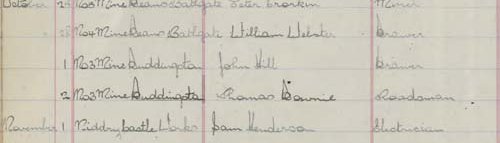 October 25 No5 Mine Deans Bathgate Peter Miner
28 No4 Mine Deans Bathgate William Webster Drawer
1 No3 Mine Duddingston John Hill Drawer
2 No3 Mine Duddingston Thomas Downie Roadsman
November 1 Niddry Castle Works Sam Henderson Electrician